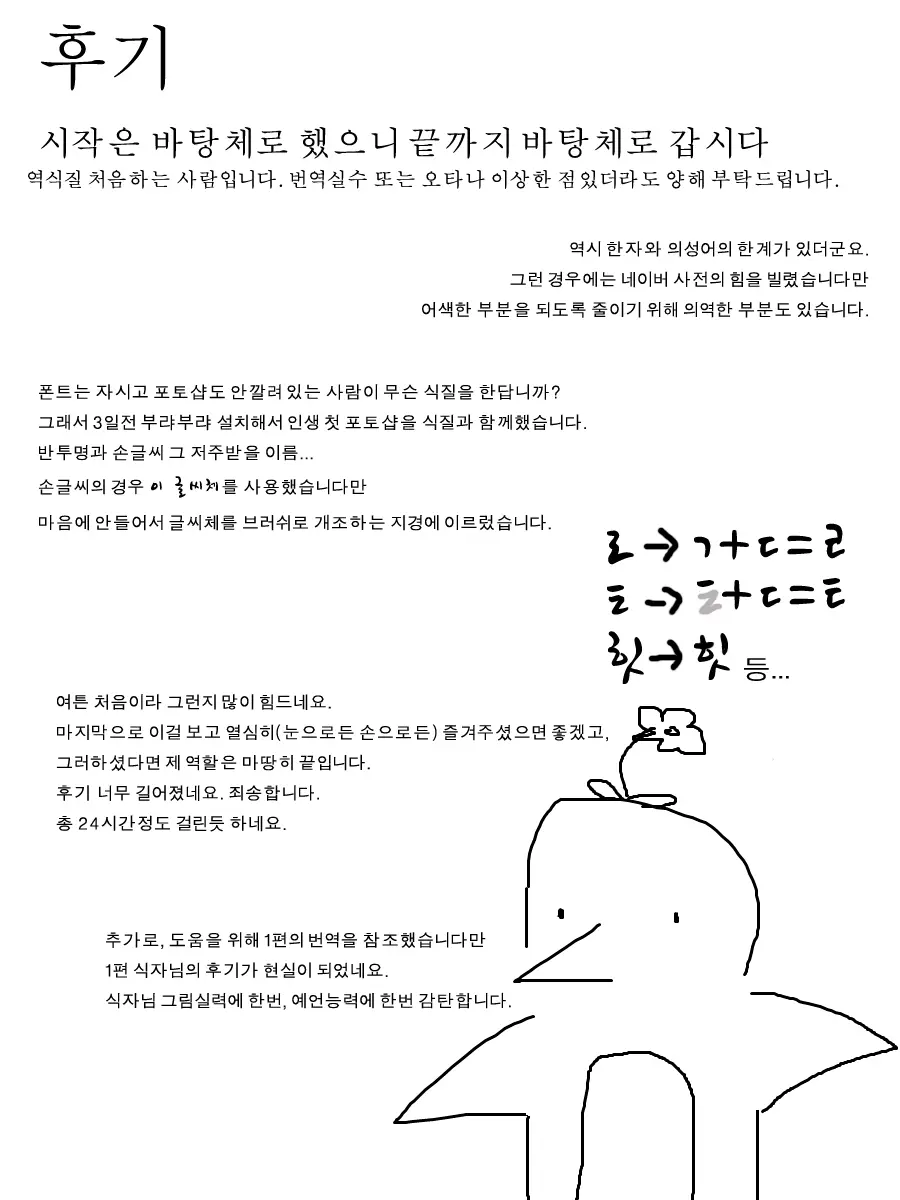 후기
시작은 바탕체로 했으니 끝까지 바탕체로 갑시다
역식질 처음하는 사람입니다. 번역실수 또는 오타나 이상한 점있더라도 양해 부탁드립니다.
역시 한자와 의성어의 한계가 있더군요.
그런 경우에는 네이버 사전의 힘을 빌렸습니다만
어색한 부분을 되도록 줄이기 위해 의역한 부분도 있습니다.
폰트는 자시고 포토샵도 안깔려있는 사람이 무슨 식질을 한답니까?
그래서 3일전 부랴부랴 설치해서 인생 첫 포토샵을 식질과 함께했습니다.
반투명과 손글씨 그 저주받을 이름...
손글씨의 경우 이 글씨체를 사용했습니다만
마음에 안들어서 글씨체를 브러쉬로 개조하는 지경에 이르렀습니다.
ㄹ→ㄱ+ㄷ=ㄹ
ㅌ→ㅌ+ㄷ=ㅌ
힛→힛 등...
여튼 처음이라 그런지 많이 힘드네요.
마지막으로 이걸 보고 열심히(눈으로든 손으로든) 즐겨주셨으면 좋겠고,
그러하셨다면 제 역할은 마땅히 끝입니다.
후기 너무 길어졌네요. 죄송합니다.
총 24시간정도 걸린듯 하네요.
추가로, 도움을 위해 1편의 번역을 참조했습니다만
1편 식자님의 후기가 현실이 되었네요.
식자님 그림실력에 한번, 예언능력에 한번 감탄합니다.